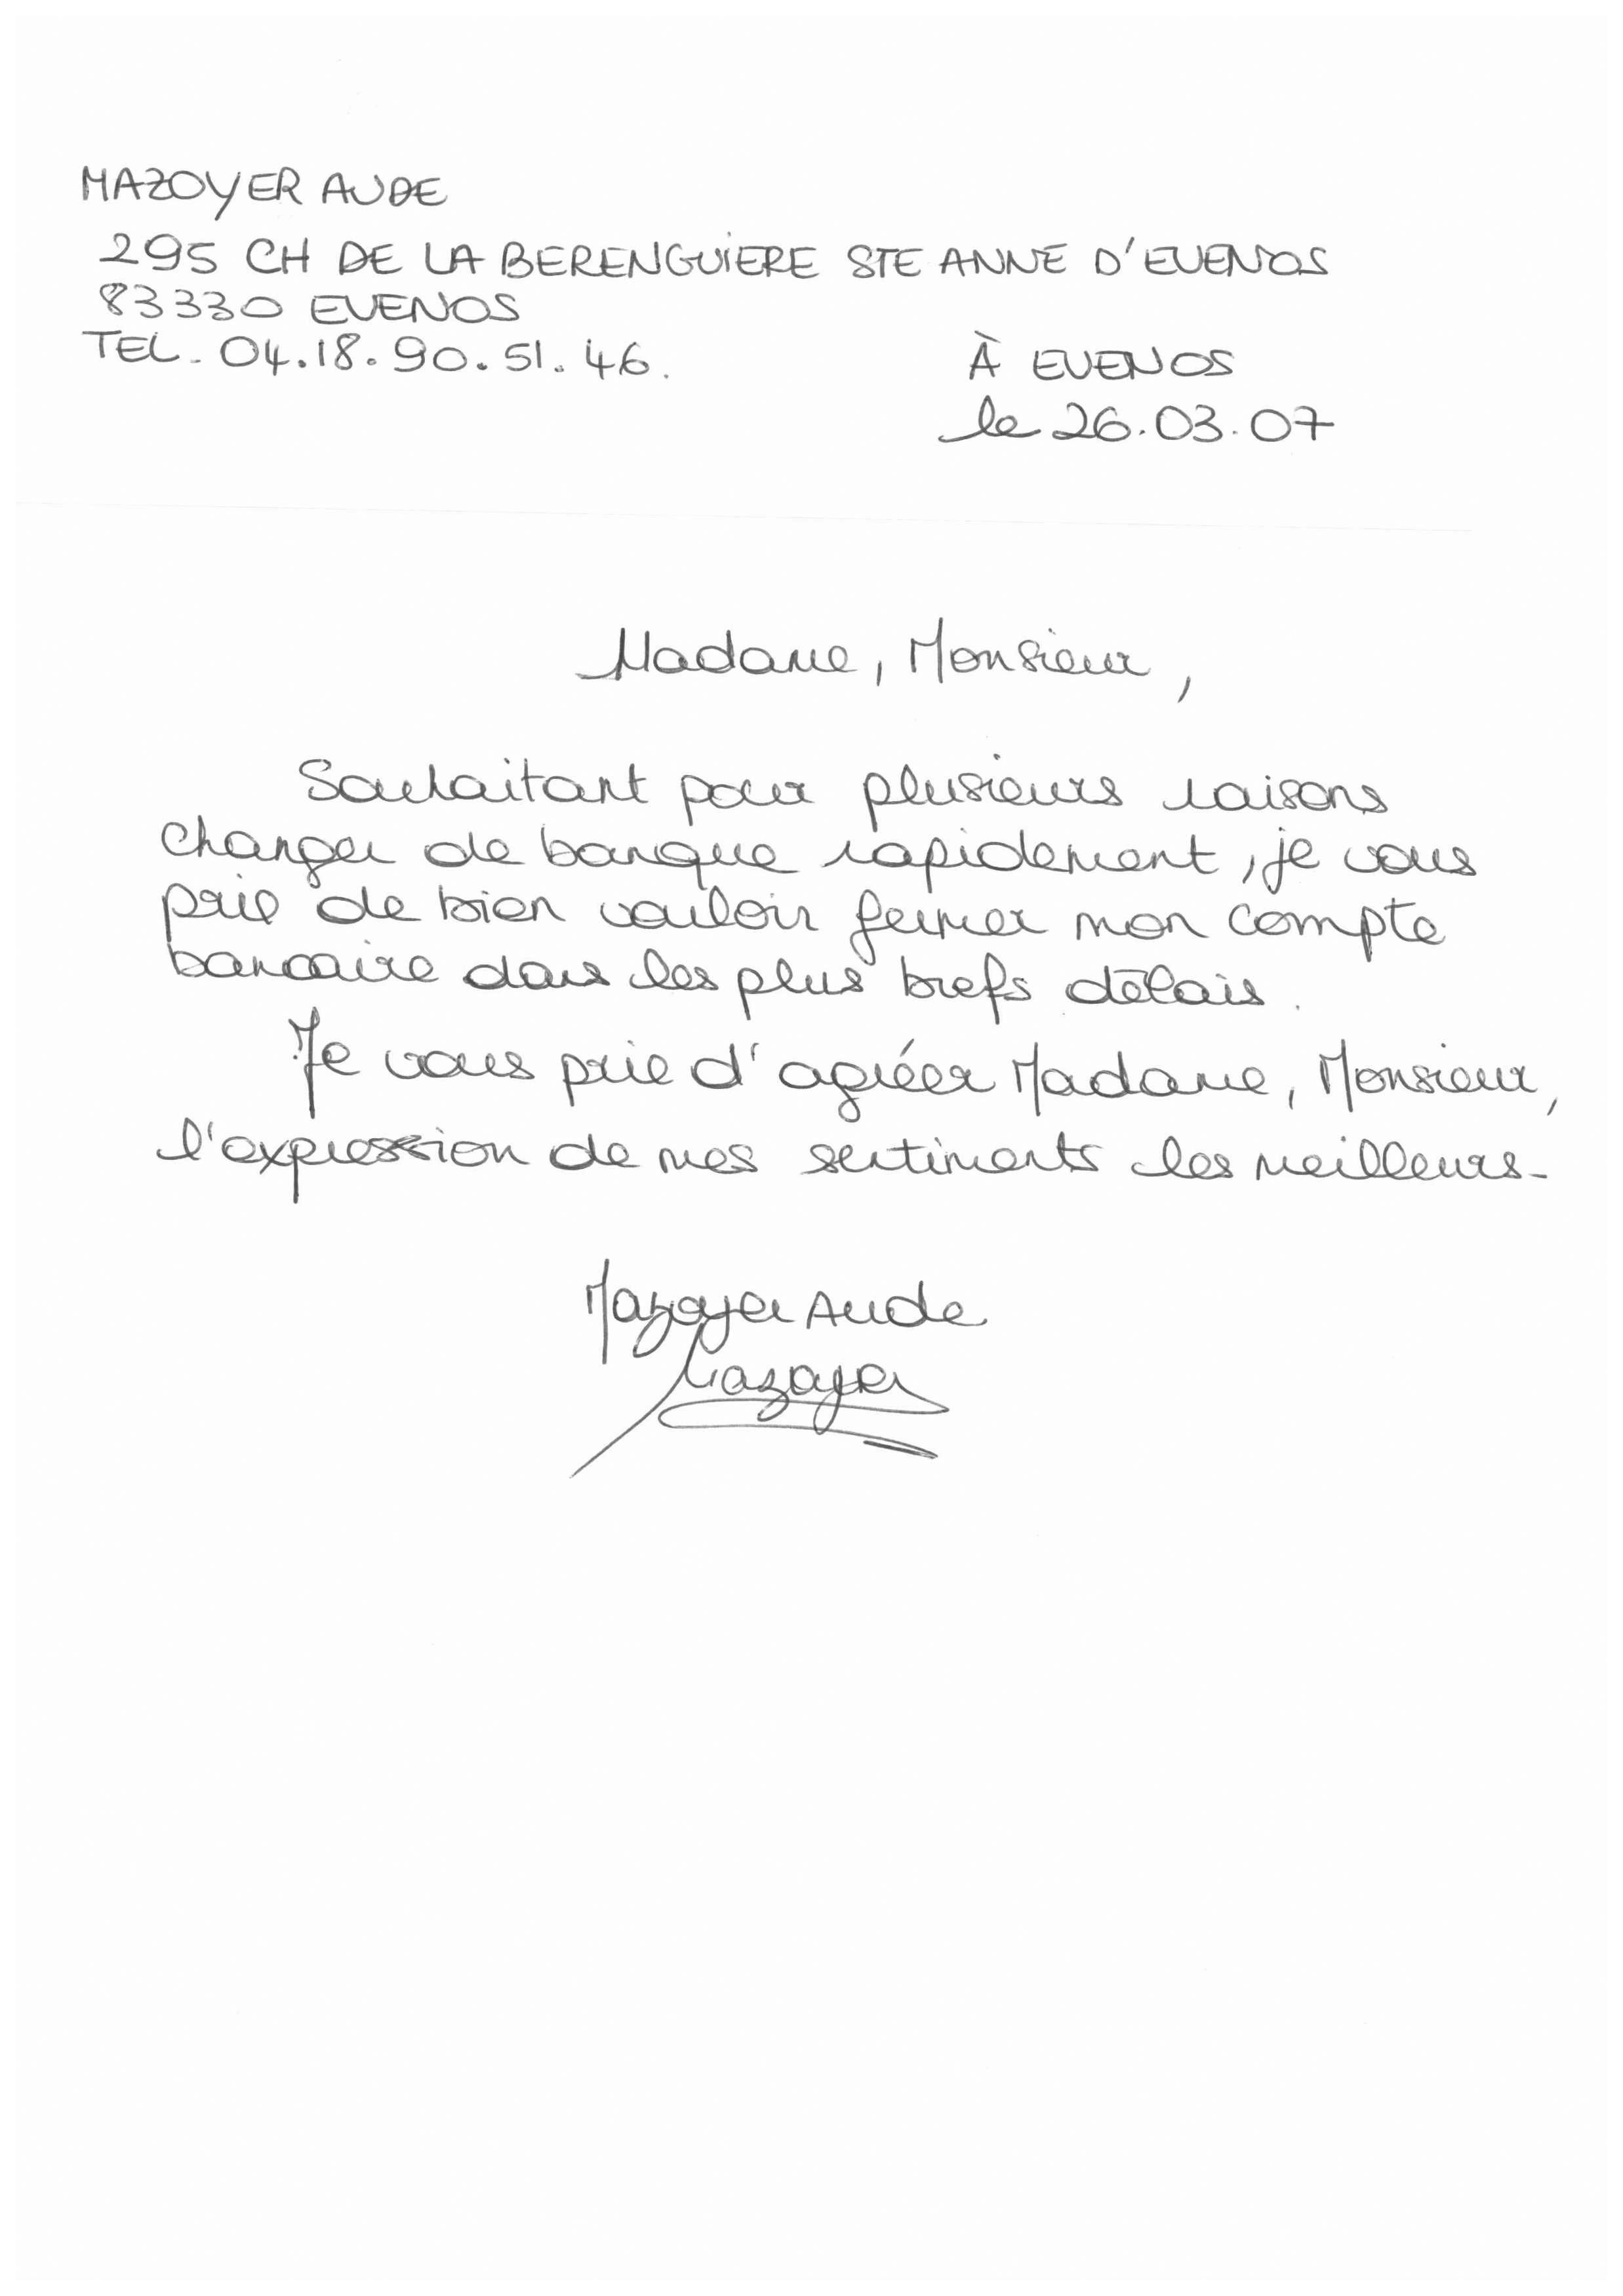 MAZOYER AUDE
295 CH DE LA BERENGUIERE STE ANNE D'EVENOS
83330 EVENOS
TEL. 04.18.90.51.46.
À EVENOS
le 26.03.07
Madame, Monsieur,
Souhaitant pour plusieurs raisons
changer de banque rapidement, je vous
prie de bien vouloir fermer mon compte
bancaire dans les plus brefs délais.
Je vous prie d'agréer Madame, Monsieur,
l'expression de mes sentiments les meilleurs.
Mazoyer Aude
Mazoyer